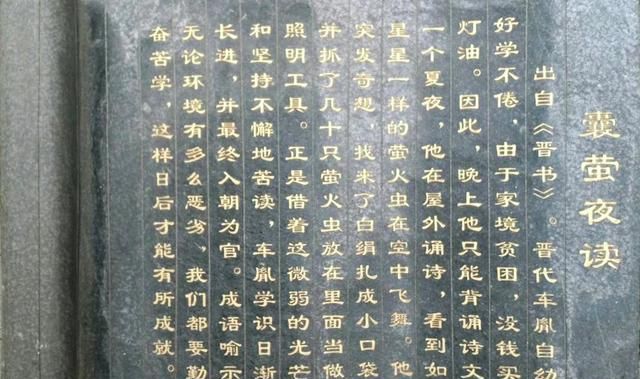 囊萤夜读
出自《晋书》。晋代车胤自幼
好学不倦，由于家境贫困，没钱买
灯油。因此，晚上他只能背诵诗文
一个夏夜，他在屋外诵诗，看到如
星星一样的萤火虫在空中飞舞。他
突发奇想，找来了白绢扎成小口袋
并抓了几十只萤火虫放在里面当做
照明工具。正是借着这微弱的光芒
和坚持不懈地苦读，车胤学识日渐
长进，并最终入朝为官。成语喻示
无论环境有多么恶劣，我们都要勤
奋苦学，这样日后才能有所成就。